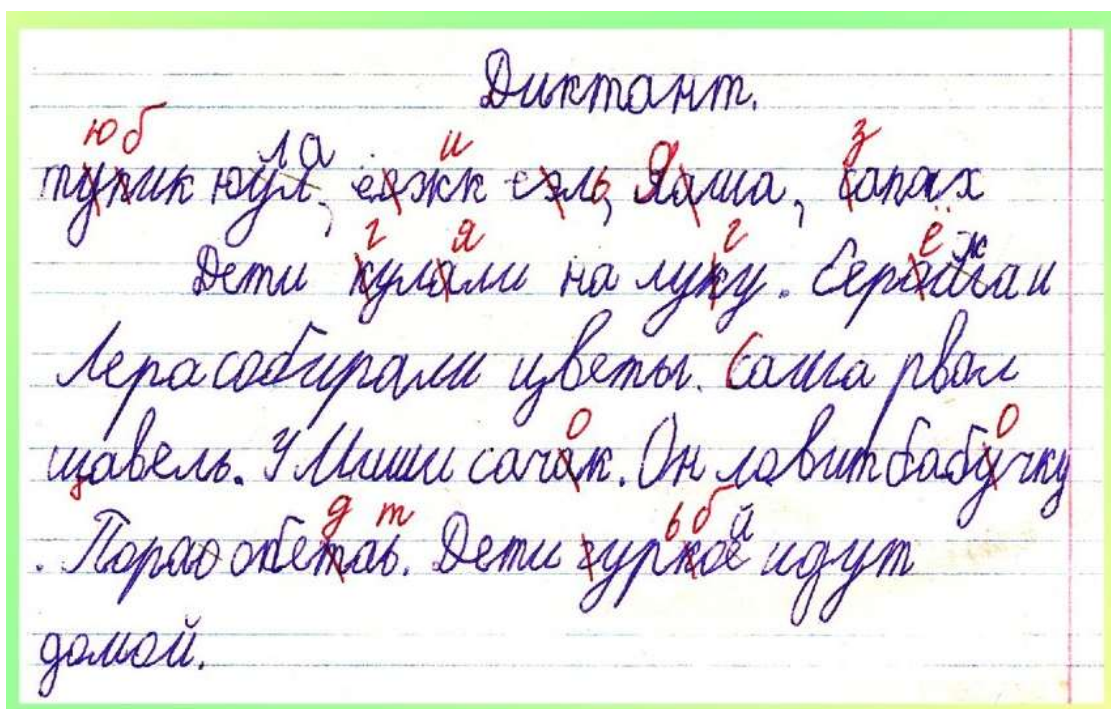 Диктант.
тупик юула, еяжк еэль, Яаша, сапах
Дети кулали на луку. Сеража и
Лера собирали цветы. Саша рвал
щавель. У Миши сачак. Он ловит бабучку
. Пораообетаь. Дети гуркой идут
домой.